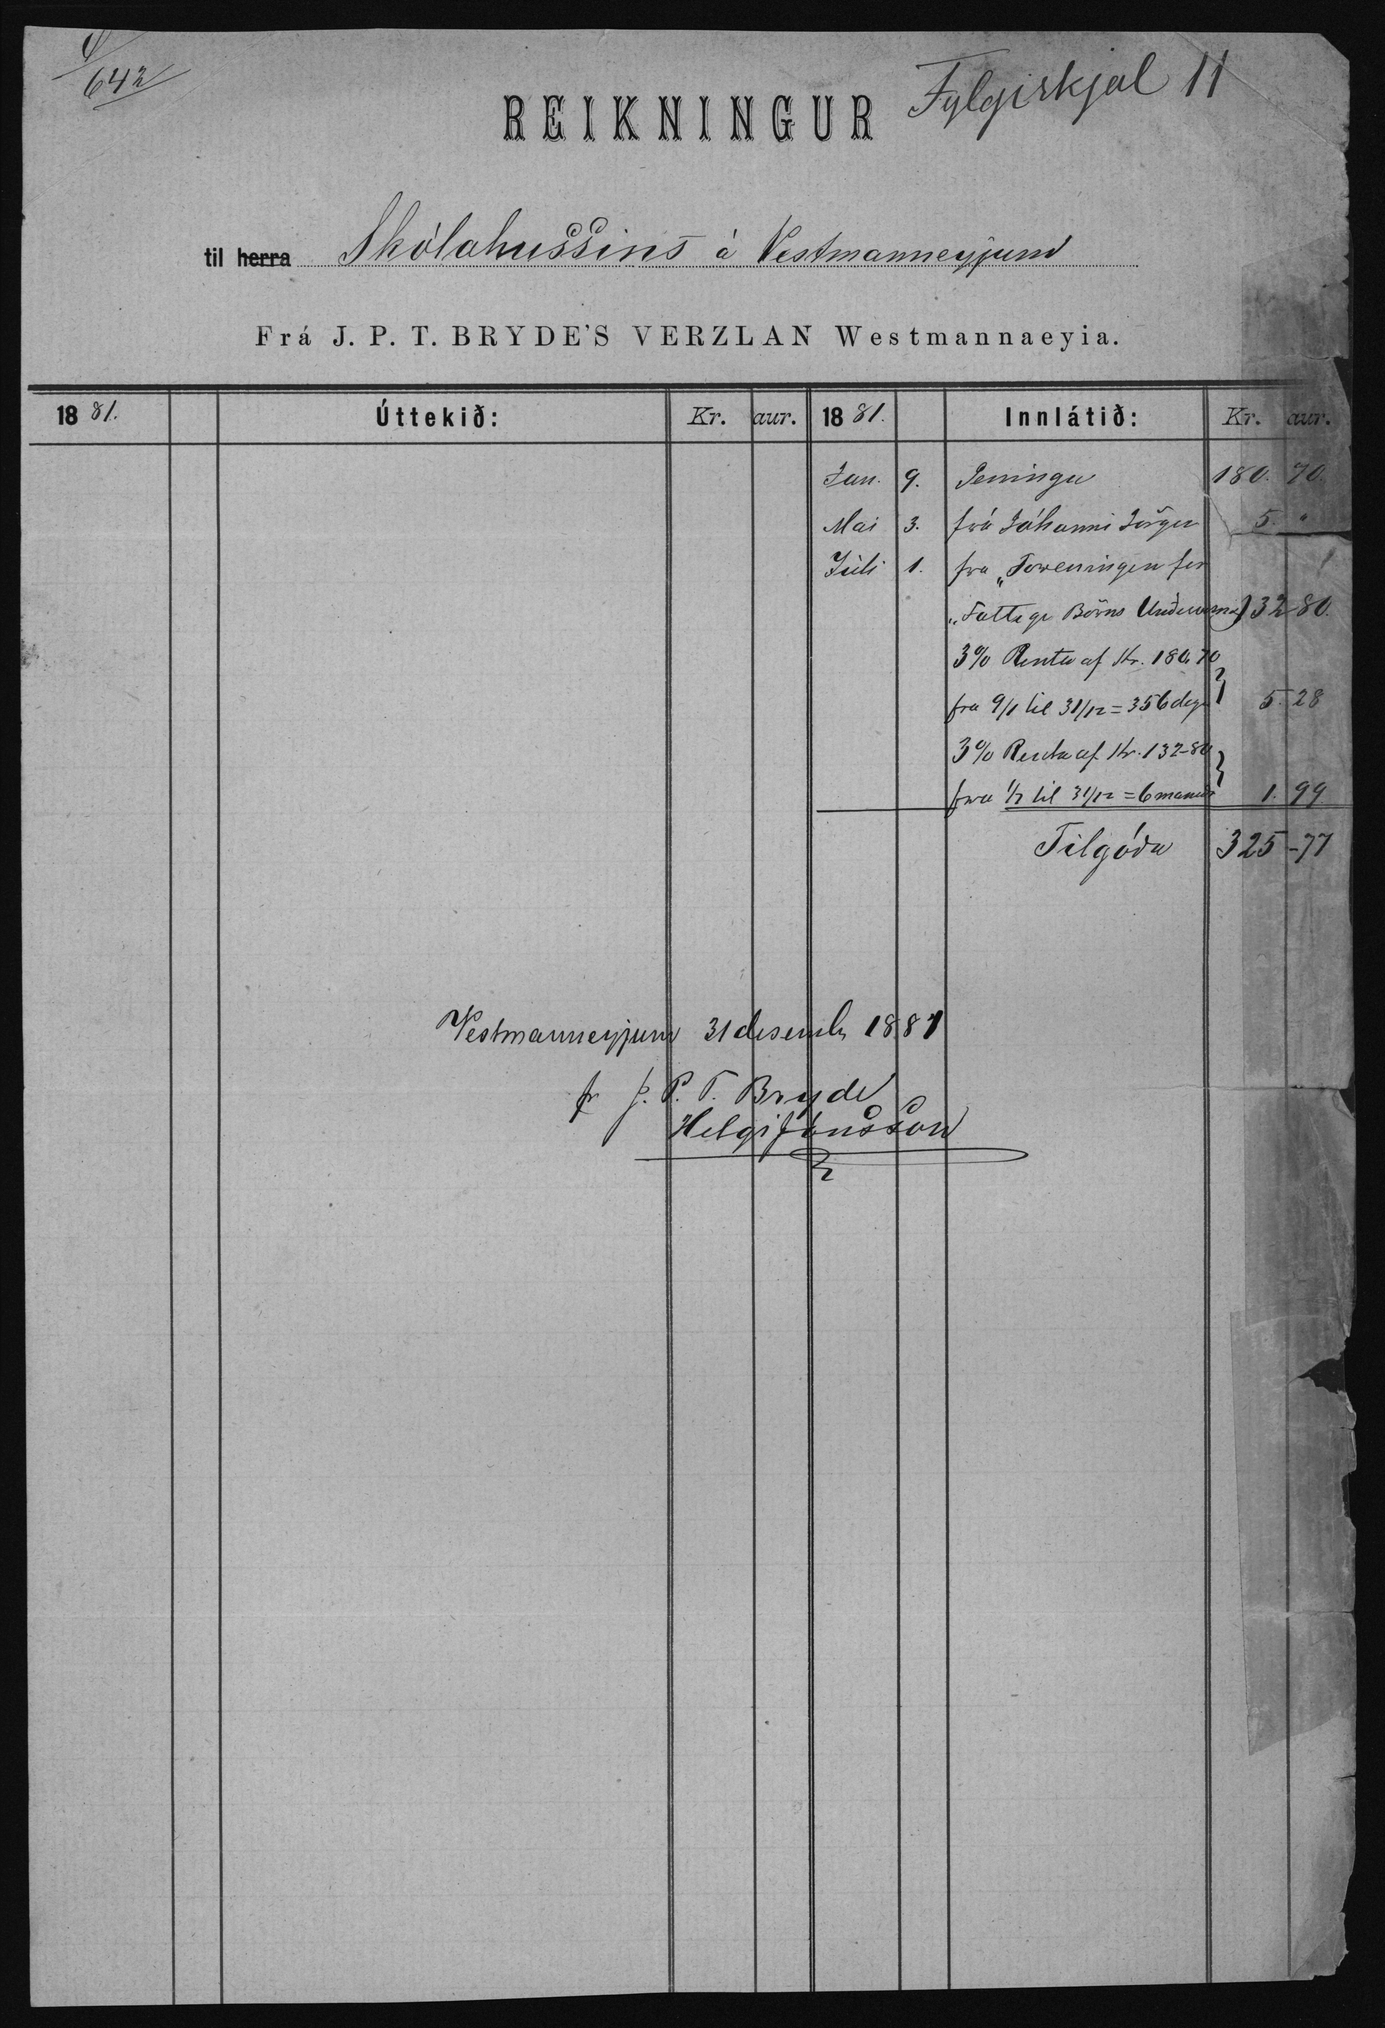 642
Fylgiskjal 11
REIKNINGUR
til herra Skólahussins á Vestmanneyjum
Frá J. P. T. BRYDE'S VERZLAN Westmannaeyia.
1881. Úttekið: Kr. aur. 1881. Innlátið: Kr. aur.
Jan. 9. Peninga 180. 70.
Mai 3. frá Jóhanni 5. "
Júli 1. fra "Foreningen for
"Fattige Börns 132 80.
3% Renta af Kr. 180,70
fra 9/1 til 31/12 = 356 daga } 5. 28
3% Renta af Kr. 132-80
fra 1/7 til 31/12 = 6 manuð } 1. 99
Tilgóða 325-77
Vestmanneyjum 31 desemb. 1881
fr J. P. T. Bryde
Helgi Jónsson